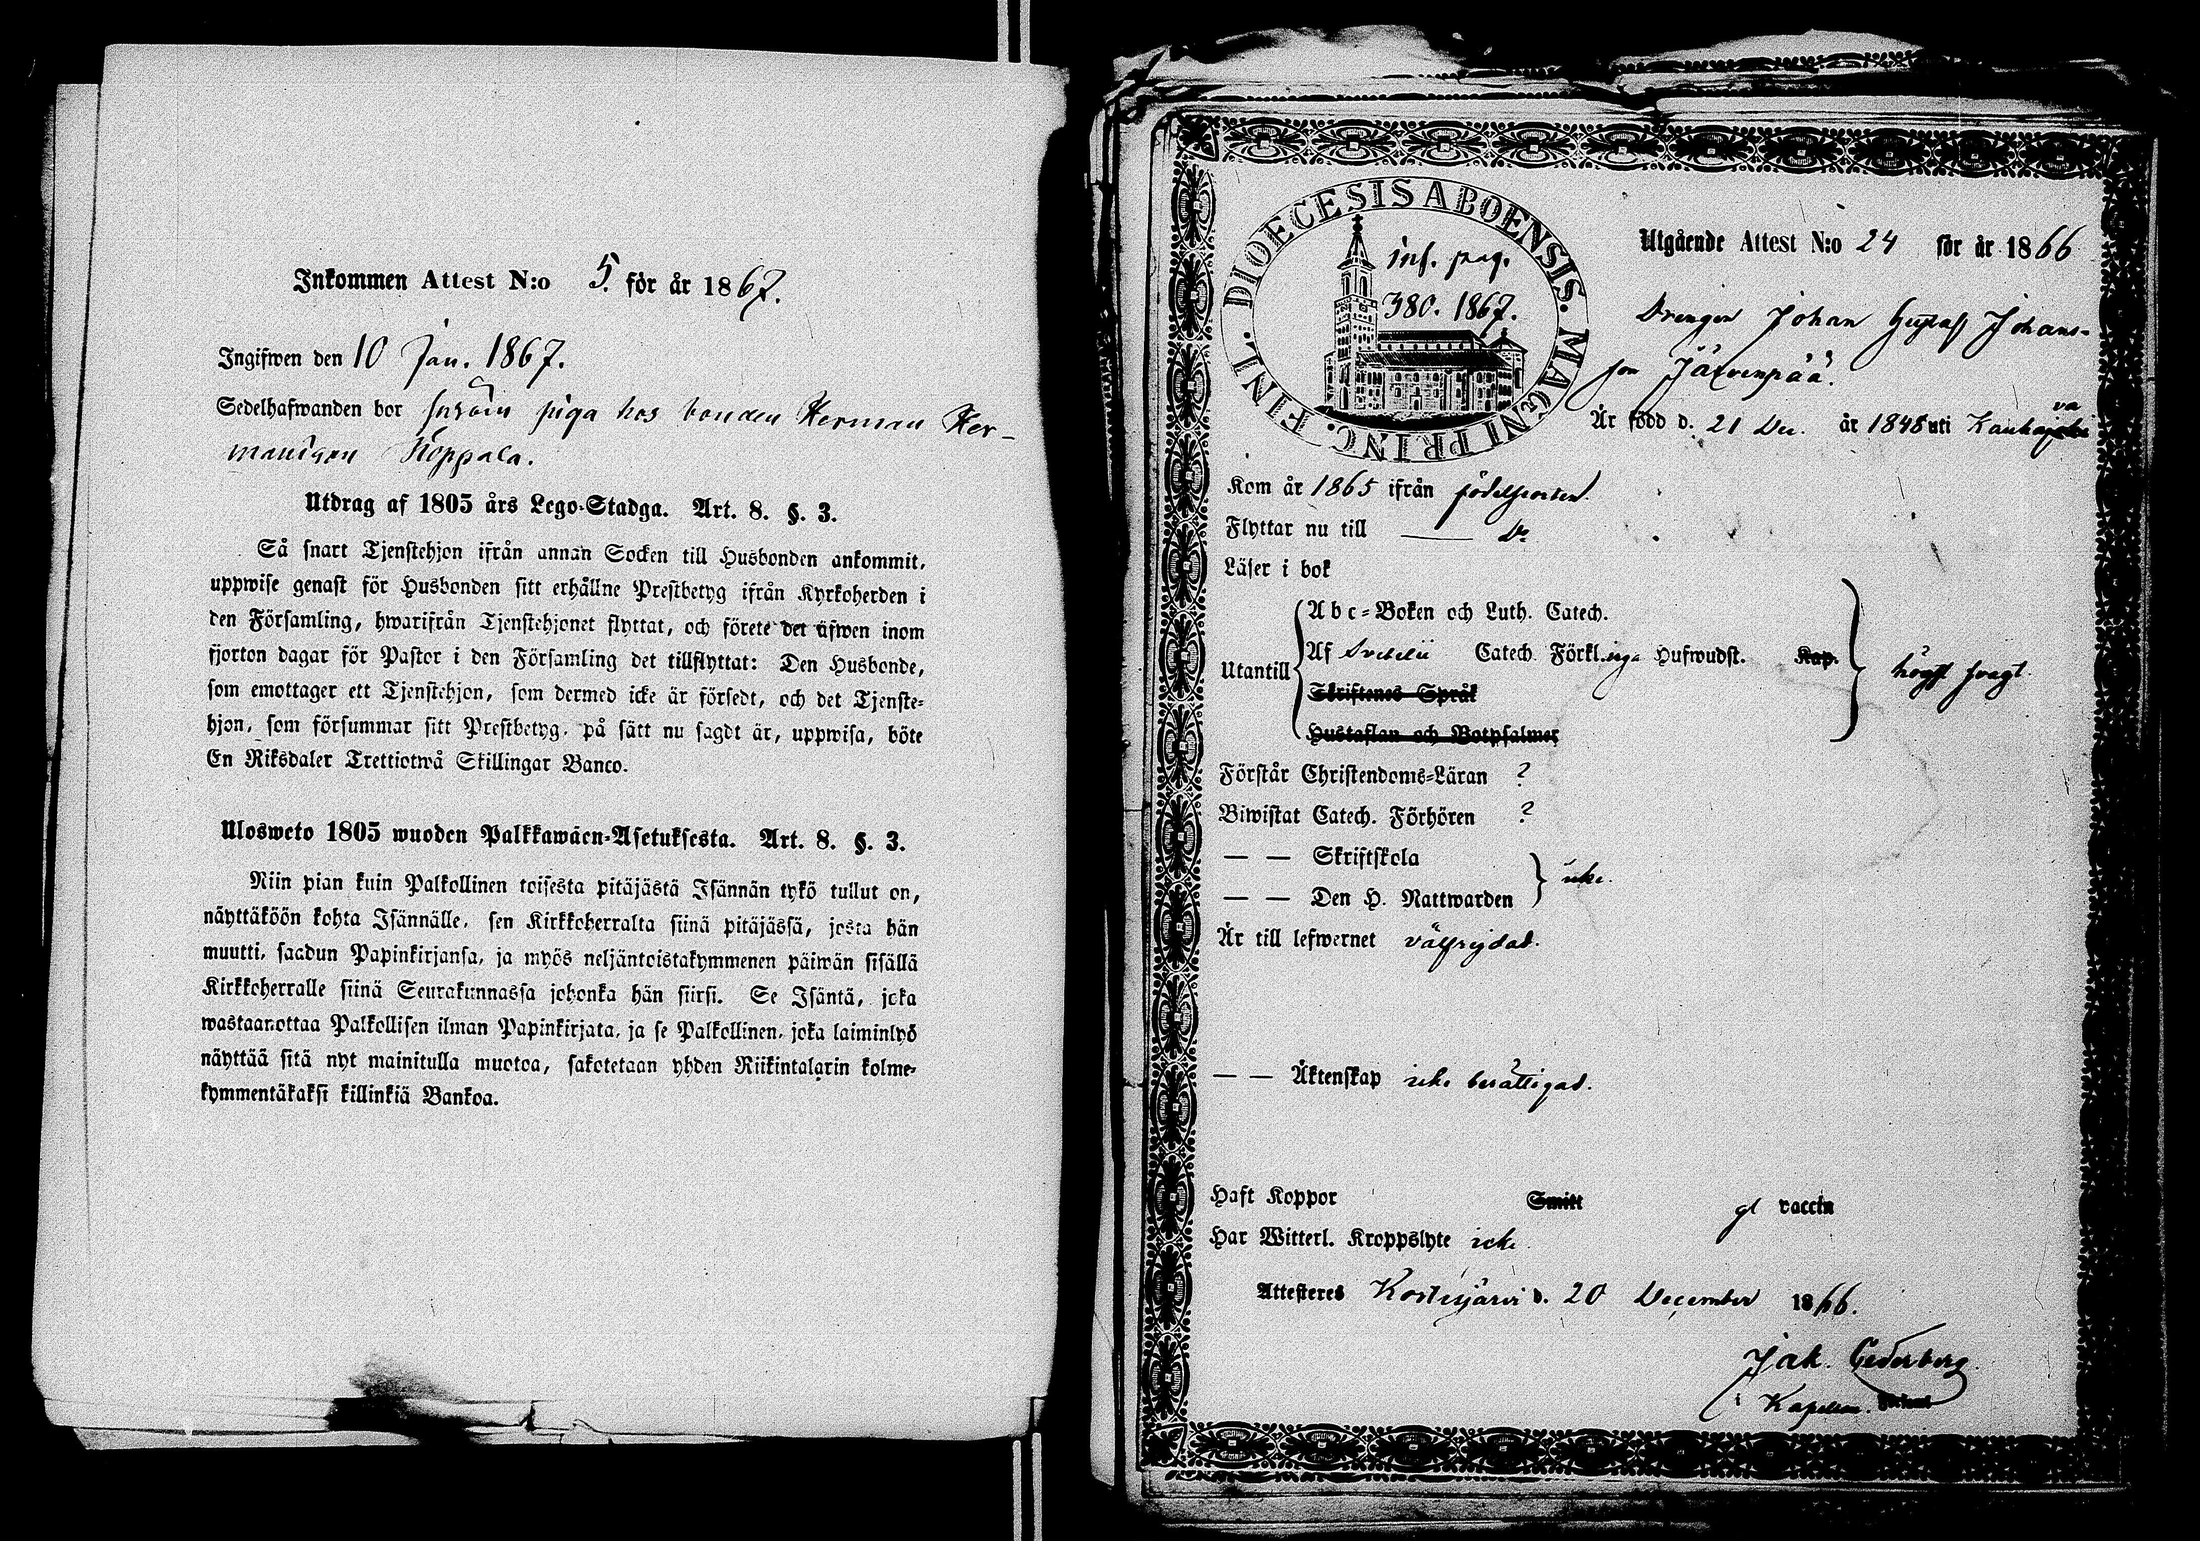 Inkommen Attest N:o 5. för år 1867.
Ingifwen den 10 Jan. 1867.
Sedelhafwanden bor såsom piga hos bonden Herman Her-
mansson Koppala.
Utdrag af 1805 års Lego-Stadga. Art. 8. §. 3.
Så snart Tjenstehjon ifrån annan Socken till Husbonden ankommit,
uppwise genast för Husbonden sitt erhållne Prestbetyg ifrån Kyrkoherden i
den Församling, hwarifrån Tjenstehjonet flyttat, och förete det äfwen inom
fjorton dagar för Pastor i den Församling det tillflyttat: Den Husbonde,
som emottager ett Tjenstehjon, som dermed icke är försedt, och det Tjenste-
hjon, som försummar sitt Prestbetyg, på sätt nu sagdt är, uppwisa, böte
En Riksdaler Trettiotwå Skillingar Banco.
Ulosweto 1805 wuoden Palkkawäen-Asetuksesta. Art. 8. §. 3.
Niin pian kuin Palkollinen toisesta pitäjästä Isännän tykö tullut on,
näyttäköön kohta Isännälle, sen Kirkkoherralta siinä pitäjässä, josta hän
muutti, saadun Papinkirjansa, ja myös neljäntoistakymmenen päiwän sisällä
Kirkkoherralle siinä Seurakunnassa johonka hän siirsi. Se Isäntä, joka
wastaanottaa Palkollisen ilman Papinkirjata, ja se Palkollinen, joka laiminlyö
näyttää sitä nyt mainitulla muotoa, sakotetaan yhden Riikintalarin kolme-
kymmentäkaksi killinkiä Bankoa.
DIOECESIS ABOENSIS. MAGNI PRINC. FINL.
inf. pag.
380. 1867.
Utgående Attest N:o 24 för år 1866
Drengen Johan Gustaf Johans-
son Järvenpää.
Är född d. 21 Dec. år 1848 uti Kauhava
Kom år 1865 ifrån födelseorten.
Flyttar nu till —— Do
Läser i bok
Utantill
Abc-Boken och Luth. Catech.
Af Svebelii Catech. Förkl.inga Hufwudst. Kap.
Skriftenes Språk
Hustaflan och Botpsalmer
högst svagt.
Förstår Christendoms-Läran ?
Biwistat Catech. Förhören ?
— — Skriftskola
— — Den H. Nattwarden
icke.
Är till lefwernet välfrejdad.
— — Äktenskap icke berättigad.
Haft Koppor Smitt gl vaccin
Har Witterl. Kroppslyte icke
Attesteres Kortesjärvi d. 20 December 1866.
Jak. Cederberg.
Kapellan.